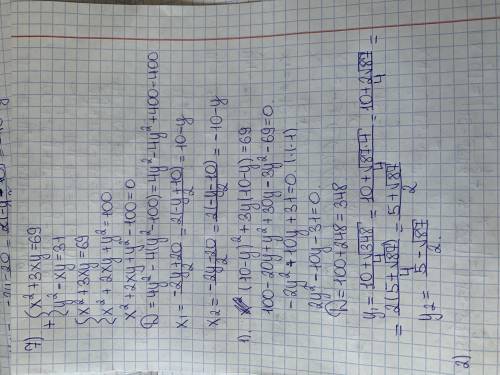 7) { x² + 3xy = 69
+ { y² - xy = 31
{ x² + 3xy = 69
{ x² + 2xy + y² = 100
x² + 2xy + y² - 100 = 0
D = 4y² - 4(y² - 100) = 4y² - 4y² + 400 = 400
x₁ = (-2y + 20)/2 = 2(-y + 10)/2 = 10 - y
x₂ = (-2y - 20)/2 = 2(-y - 10)/2 = -10 - y
1). (10 - y)² + 3y(10 - y) = 69
100 - 20y + y² + 30y - 3y² - 69 = 0
-2y² + 10y + 31 = 0. | · (-1)
2y² - 10y - 31 = 0.
D = 100 + 248 = 348
y₁ = (10 + √348)/4 = (10 + √(87·4))/4 = (10 + 2√87)/4 =
= 2(5 + √87)/4 = (5 + √87)/2
y₂ = (5 - √87)/2.
2).